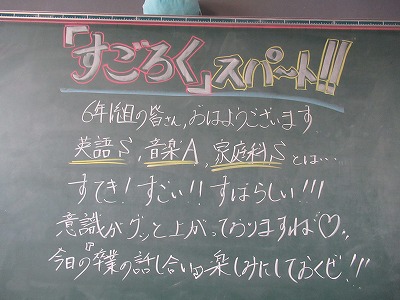 「すごろく」スパート!!
6年1組の皆さん、おはようございます
英語S、音楽A、家庭科Sとは…
すてき！すごい!!すばらしい!!!
意識がグッと上がっておりますね♡。
今日の『卒業の話し合い』楽しみにしておくぜ!!!